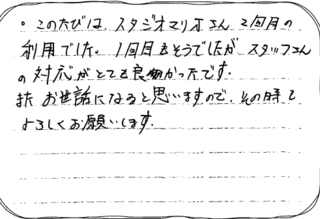 。このたびは、スタジオマリオさん 2回目の
利用でした。1回目もそうでしたが スタッフさん
の対応がとても良かったです。
また お世話になると思いますので、その時も
よろしくお願いします。